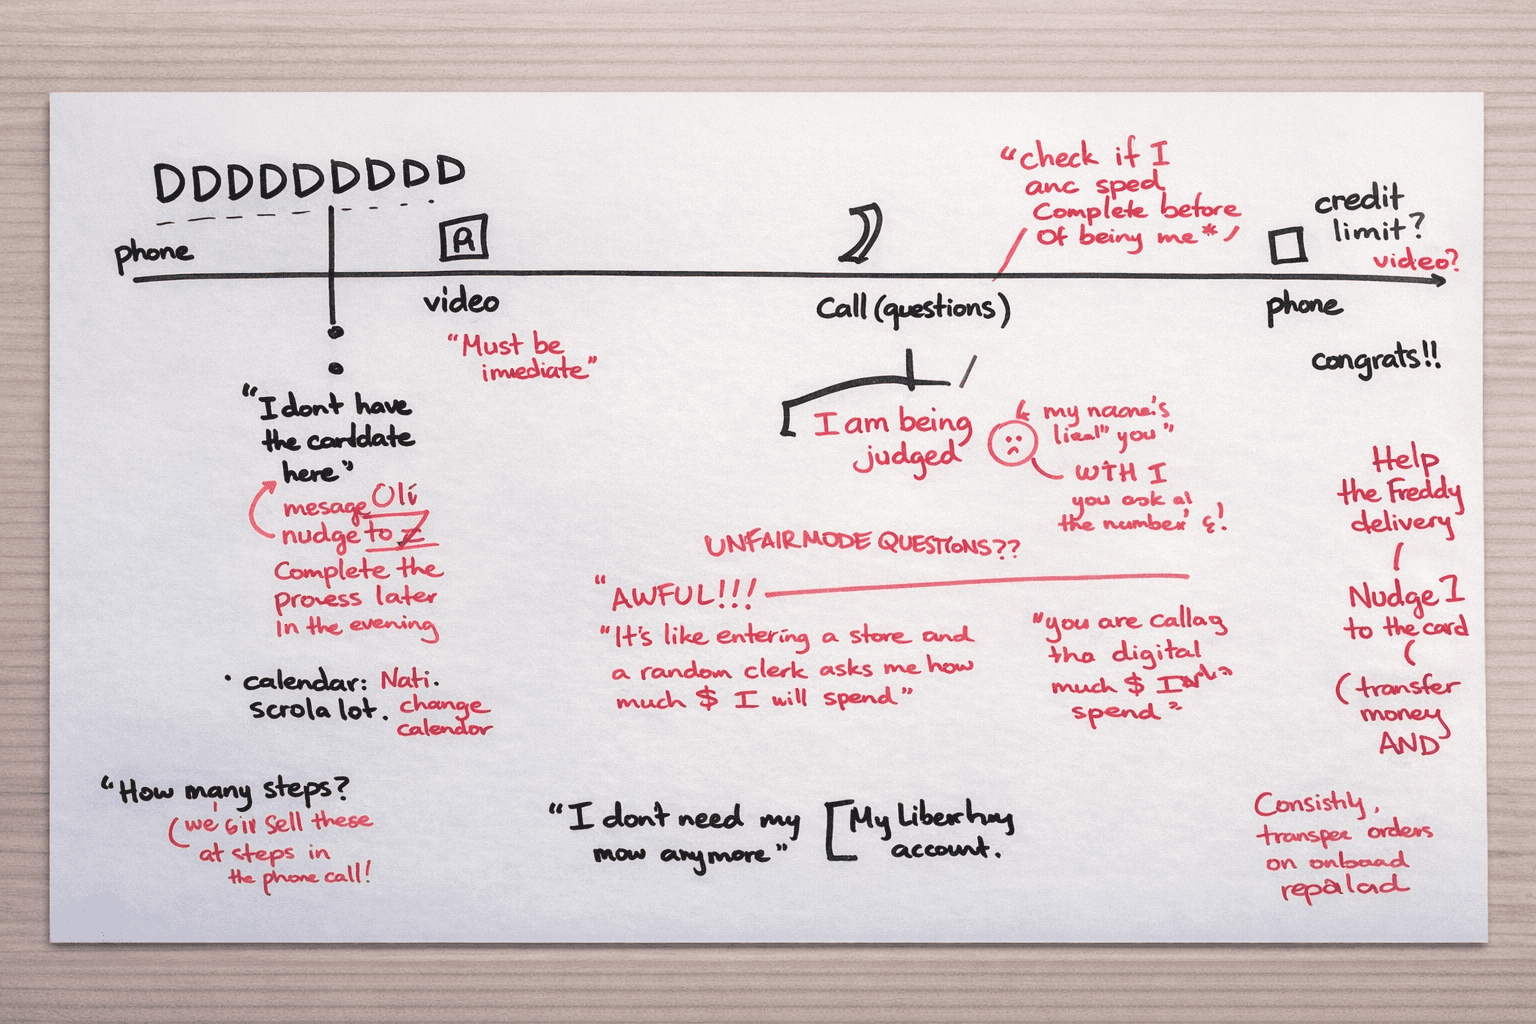 DDDDDDDDD
phone
R
video
"Must be
imediate"
"I dont have
the carddate
here"
mesage Oli
nudge to
Complete the
provess later
In the evening
• calendar: Nati.
scrola lot. change
calendor
"How many steps?
(we Sell these
at steps in
the phone call!
Call (questions)
"check if I
anc sped
Complete before
Of beiny me*
I am being
judged
my naone's
you"
WTH I
you ask al
the number'
UNFAIRMODE QUESTIONS??
"AWFUL!!!
"It's like entering a store and
a random clerk asks me how
much $ I will spend"
"you are callag
tha digital
much $ I
spend"
"I don't need my
mow anymore"
[My Liberthny
account.
credit
limit?
video?
phone
congrats!!
Help
the Freddy
delivery
Nudge I
to the card
(transfer
money
AND
Consishly,
transpee orders
on onboad
repalad